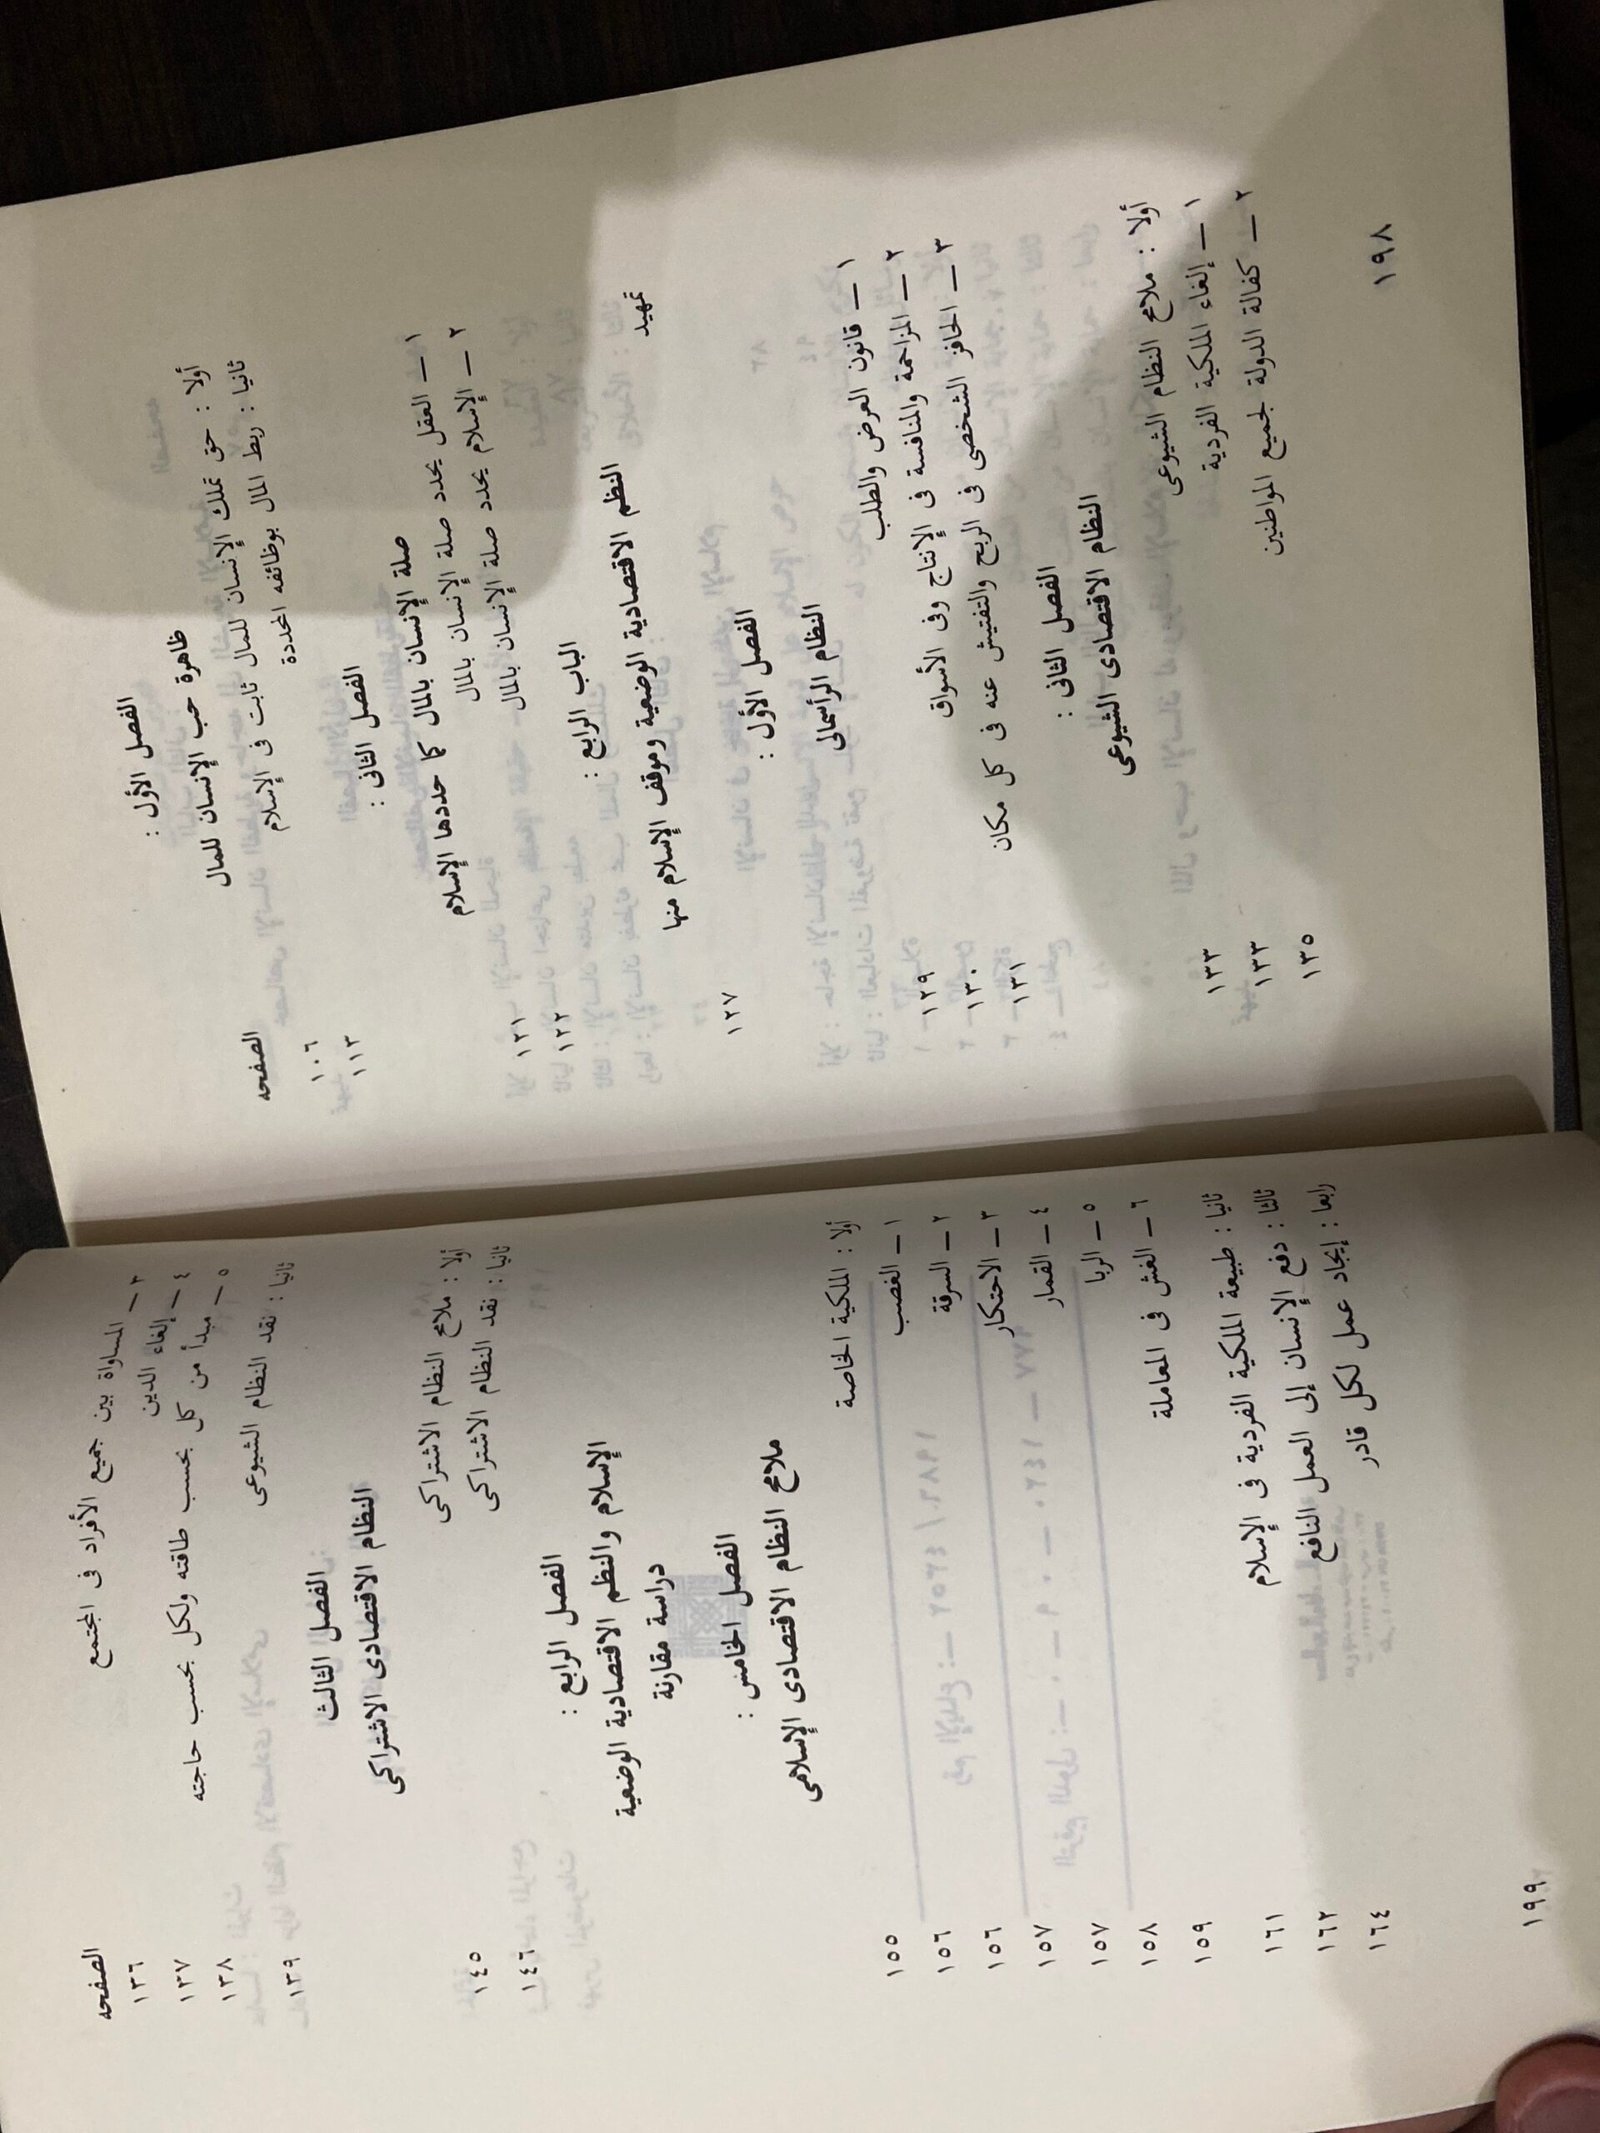 الصفحه
الفصل الأول :
ظاهرة حب الإنسان للمال
أولا : حق تملك الإنسان للمال ثابت فى الإسلام ١٠٦
ثانيا : ربط المال بوظائفه المحددة ١١٣
الفصل الثانى :
صلة الإنسان بالمال كما حددها الإسلام
١ ــ العقل يحدد صلة الإنسان بالمال ١٢١
٢ ــ الإسلام يحدد صلة الإنسان بالمال ١٢٢
الباب الرابع :
النظم الاقتصادية الوضعية وموقف الإسلام منها
تمهيد ١٢٧
الفصل الأول :
النظام الرأسمالى
١ ــ قانون العرض والطلب ١٢٩
٢ ــ المزاحمة والمنافسة فى الإنتاج وفى الأسواق ١٣٠
٣ ــ الحافز الشخصى فى الربح والتفتيش عنه فى كل مكان ١٣١
الفصل الثانى :
النظام الاقتصادى الشيوعى
أولا : ملامح النظام الشيوعى ١٣٣
١ ــ إلغاء الملكية الفردية ١٣٣
٢ ــ كفالة الدولة لجميع المواطنين ١٣٥
١٩٨
الصفحه
٣ ــ المساواة بين جميع الأفراد فى المجتمع ١٣٦
٤ ــ إلغاء الدين ١٣٧
٥ ــ مبدأ من كل بحسب طاقته ولكل بحسب حاجته ١٣٨
ثانيا : نقد النظام الشيوعى ١٣٩
الفصل الثالث
النظام الاقتصادى الاشتراكى
أولا : ملامح النظام الاشتراكى ١٤٥
ثانيا : نقد النظام الاشتراكى ١٤٦
الفصل الرابع :
الإسلام والنظم الاقتصادية الوضعية
دراسة مقارنة
الفصل الخامس :
ملامح النظام الاقتصادى الإسلامى
أولا : الملكية الخاصة ١٥٥
١ ــ الغصب ١٥٦
٢ ــ السرقة ١٥٦
٣ ــ الاحتكار ١٥٧
٤ ــ القمار ١٥٧
٥ ــ الربا ١٥٨
٦ ــ الغش فى المعاملة ١٥٩
ثانيا : طبيعة الملكية الفردية فى الإسلام ١٦١
ثالثا : دفع الإنسان إلى العمل النافع ١٦٢
رابعا : إيجاد عمل لكل قادر ١٦٤
١٩٩